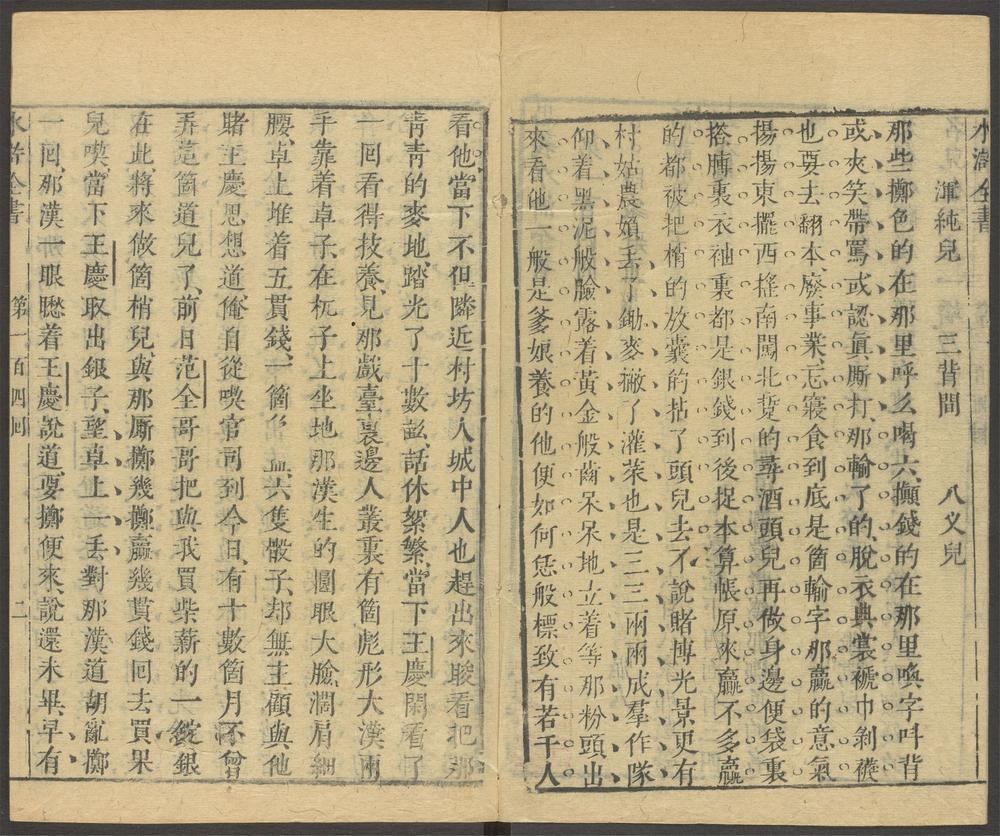 水滸全書
渾純兒 三背間 八义兒
那些擲色的在那里呼么喝六攧錢的在那里喚字呌背
或夾笑帶罵或認眞厮打那輸了的脫衣典裳褫巾剝襪
也要去翻本廢事業忘寢食到底是箇輸字那贏的意氣
揚揚東擺西搖南闖北踅的尋酒頭兒再做身邊便袋裏
搭膊裏衣袖裏都是銀錢到後捉本算帳原來贏不多贏
的都被把梢的放囊的拈了頭兒去不說賭博光景更有
村姑農婦丢了鋤麥撇了灌菜也是三三兩兩成羣作隊
仰着黑泥般臉露着黃金般齒呆呆地立着等那粉頭出
來看他一般是爹娘養的他便如何恁般標致有若干人
看他當下不但隣近村坊人城中人也趕出來睃看把那
靑靑的麥地踏光了十數畝話休絮繁當下王慶閑看了
一回看得技養見那戲臺裏邊人叢裏有箇彪形大漢兩
手靠着卓子在杌子上坐地那漢生的圓眼大臉濶肩細
腰卓上堆着五貫錢一箇色盆六隻骰子却無主顧與他
賭王慶思想道俺自從喫官司到今日有十數箇月不曾
弄這箇道兒了前日范全哥哥把與我買柴薪的一錠銀
在此將來做箇梢兒與那厮擲幾擲贏幾貫錢回去買果
兒喫當下王慶取出銀子望卓上一丢對那漢道胡亂擲
一回那漢一眼瞧着王慶說道要擲便來說還未畢早有
水滸全書 第一百四回 二